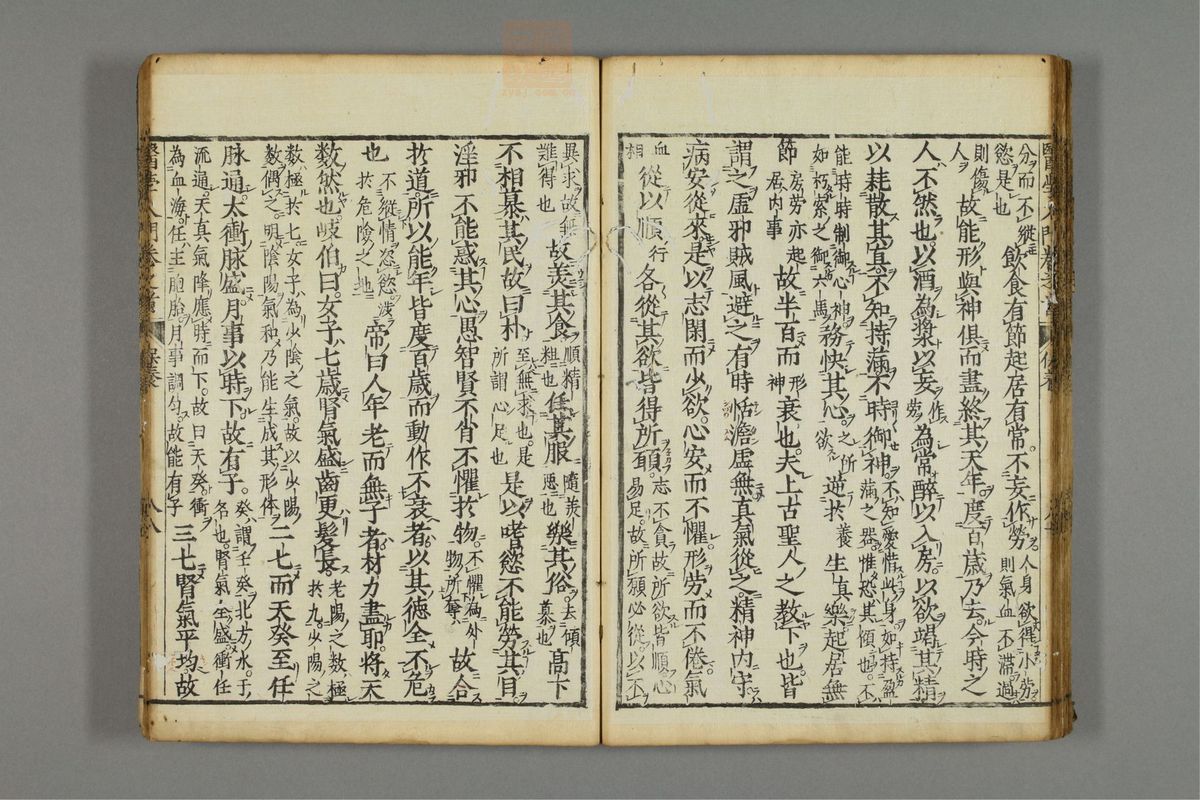 分而不縱慾是也飲食有節起居有常。不妄作勞人身欲得小勞則氣血不滯過
則傷人故能形與神俱而盡終其天年度百歳乃去。今時之
人不然也。以酒為漿以妄作勞為常醉以入房。以欲竭其精
以耗散其真不知持滿不時御神不知愛惜此身如持盈滿之器惟恐其傾也不
能時時制御心神如朽索之御六馬務快其心欲之所逆於養生真樂起居無
節房勞亦起居内事故半百而形神衰也。夫上古聖人之教下也。皆
謂之虚邪賊風避之有時恬澹虚無真氣從之精神内守
病安從來是以志閑而少欲。心安而不懼形勞而不倦。氣
血相從以順行各從其欲皆得所願。志不貪故所欲皆順心易足。故所願必從以不
異求故無難得也故美其食順精粗也任其服隨美惡也樂其俗去傾慕也高下
不相慕其民故曰朴至無求也。是所謂心足也是以嗜慾不能勞其目
淫邪不能惑其心愚智賢不肖不懼於物不懼為外物所奪故合
於道所以能年皆度百歳而動作不衰者以其徳全不危
也不縱情恣慾渉於危險之地帝曰人年老而無子者材力盡耶。将天
数然也岐伯曰。女子七歳腎氣盛齒更髪長。老陽之数極於九。少陽之
数極於七女子為少陰之氣。故以少陽数偶之。明陰陽氣和乃能生成其形体二七而天癸至任
脉通。太衝脉盛月事以時下。故有子。癸謂壬癸北方水。干名也。腎氣全盛衝任
流通。天真氣降應時而下。故曰天癸。衝為血海。任主胞胎。月事調匀。故能有子三七腎氣平均故
醫學入門卷之首 保養 八